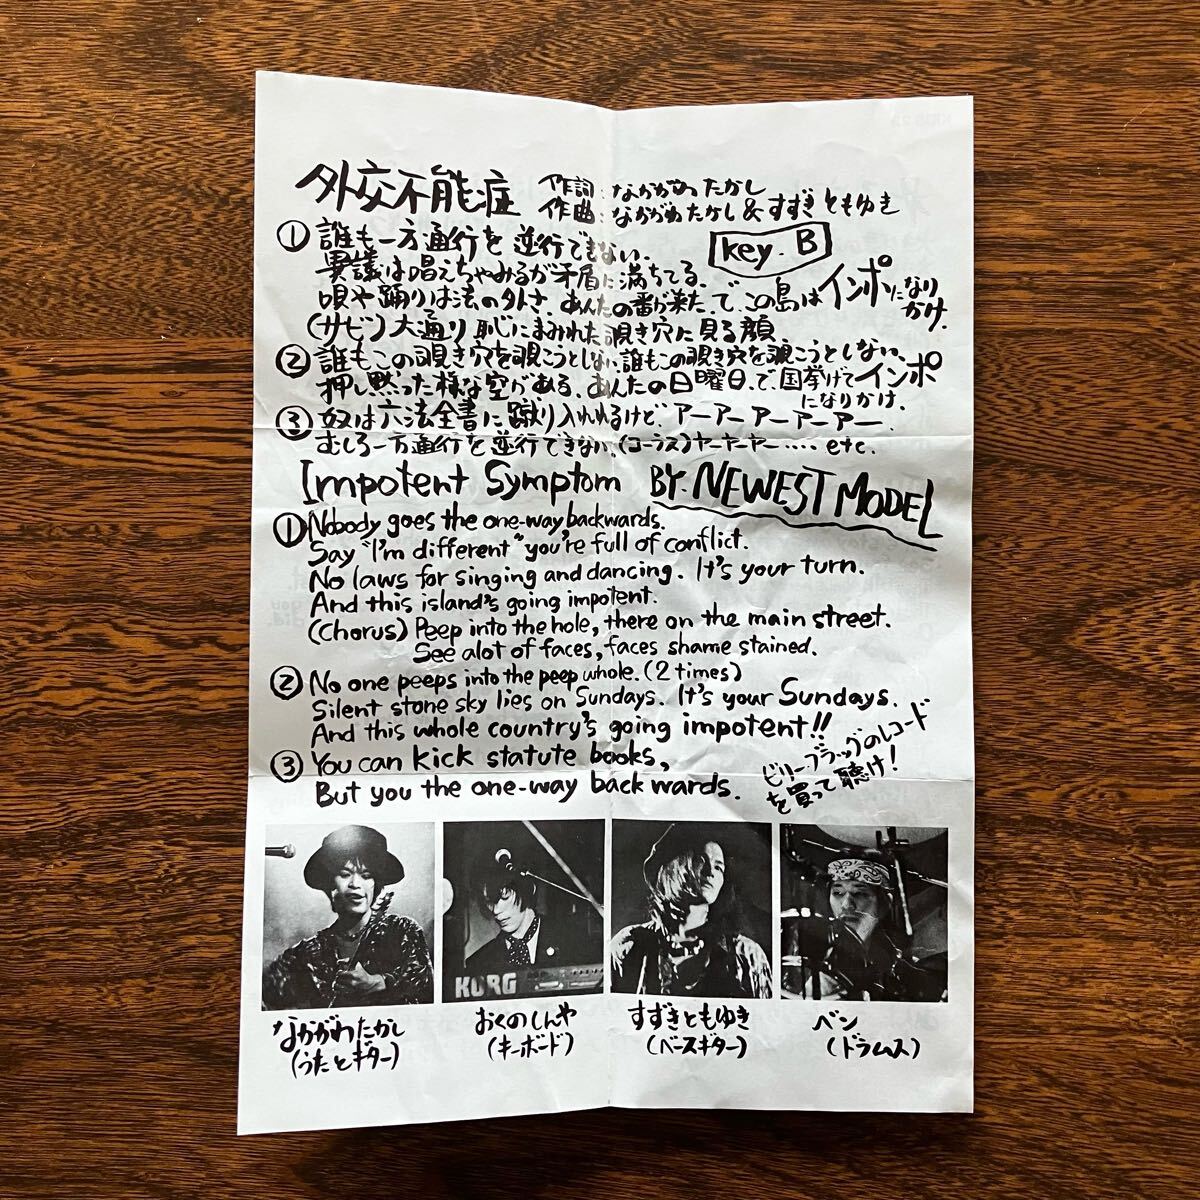 外交不能症 作詞:なかがわたかし
作曲:なかがわたかし&すずきともゆき
① 誰も一方通行を逆行できない.
key. B
異議は唱えちゃみるが矛盾に満ちてる.
唄や踊りは法の外さ. あんたの番が来た.で、この島はインポになりかけ.
(サビ)大通り恥にまみれた覗き穴に見る顔
② 誰もこの覗き穴を覗こうとしない、誰もこの覗き穴を覗こうとしない、
押し黙った様な空がある. あんたの日曜日.で、国挙げてインポ
になりかけ.
③ 奴は六法全書に蹴り入れれるけど、アーアーアーアーアー
むしろ一方通行を逆行できない.(コーラス)ヤーヤーヤー..... etc.
Impotent Symptom BY. NEWEST MODEL
① Nobody goes the one-way backwards.
Say "I'm different" you're full of conflict.
No laws for singing and dancing. It's your turn.
And this island's going impotent.
(Chorus) Peep into the hole, there on the main street.
See alot of faces, faces shame stained.
② No one peeps into the peep whole. (2 times)
Silent stone sky lies on Sundays. It's your Sundays.
And this whole country's going impotent!!
③ You can kick statute books,
But you the one-way back wards.
ビリーブラッグのレコード
を買って聴け!
KORG
なかがわたかし
(うたとギター)
おくのしんや
(キーボード)
すずきともゆき
(ベースギター)
ベン
(ドラムス)